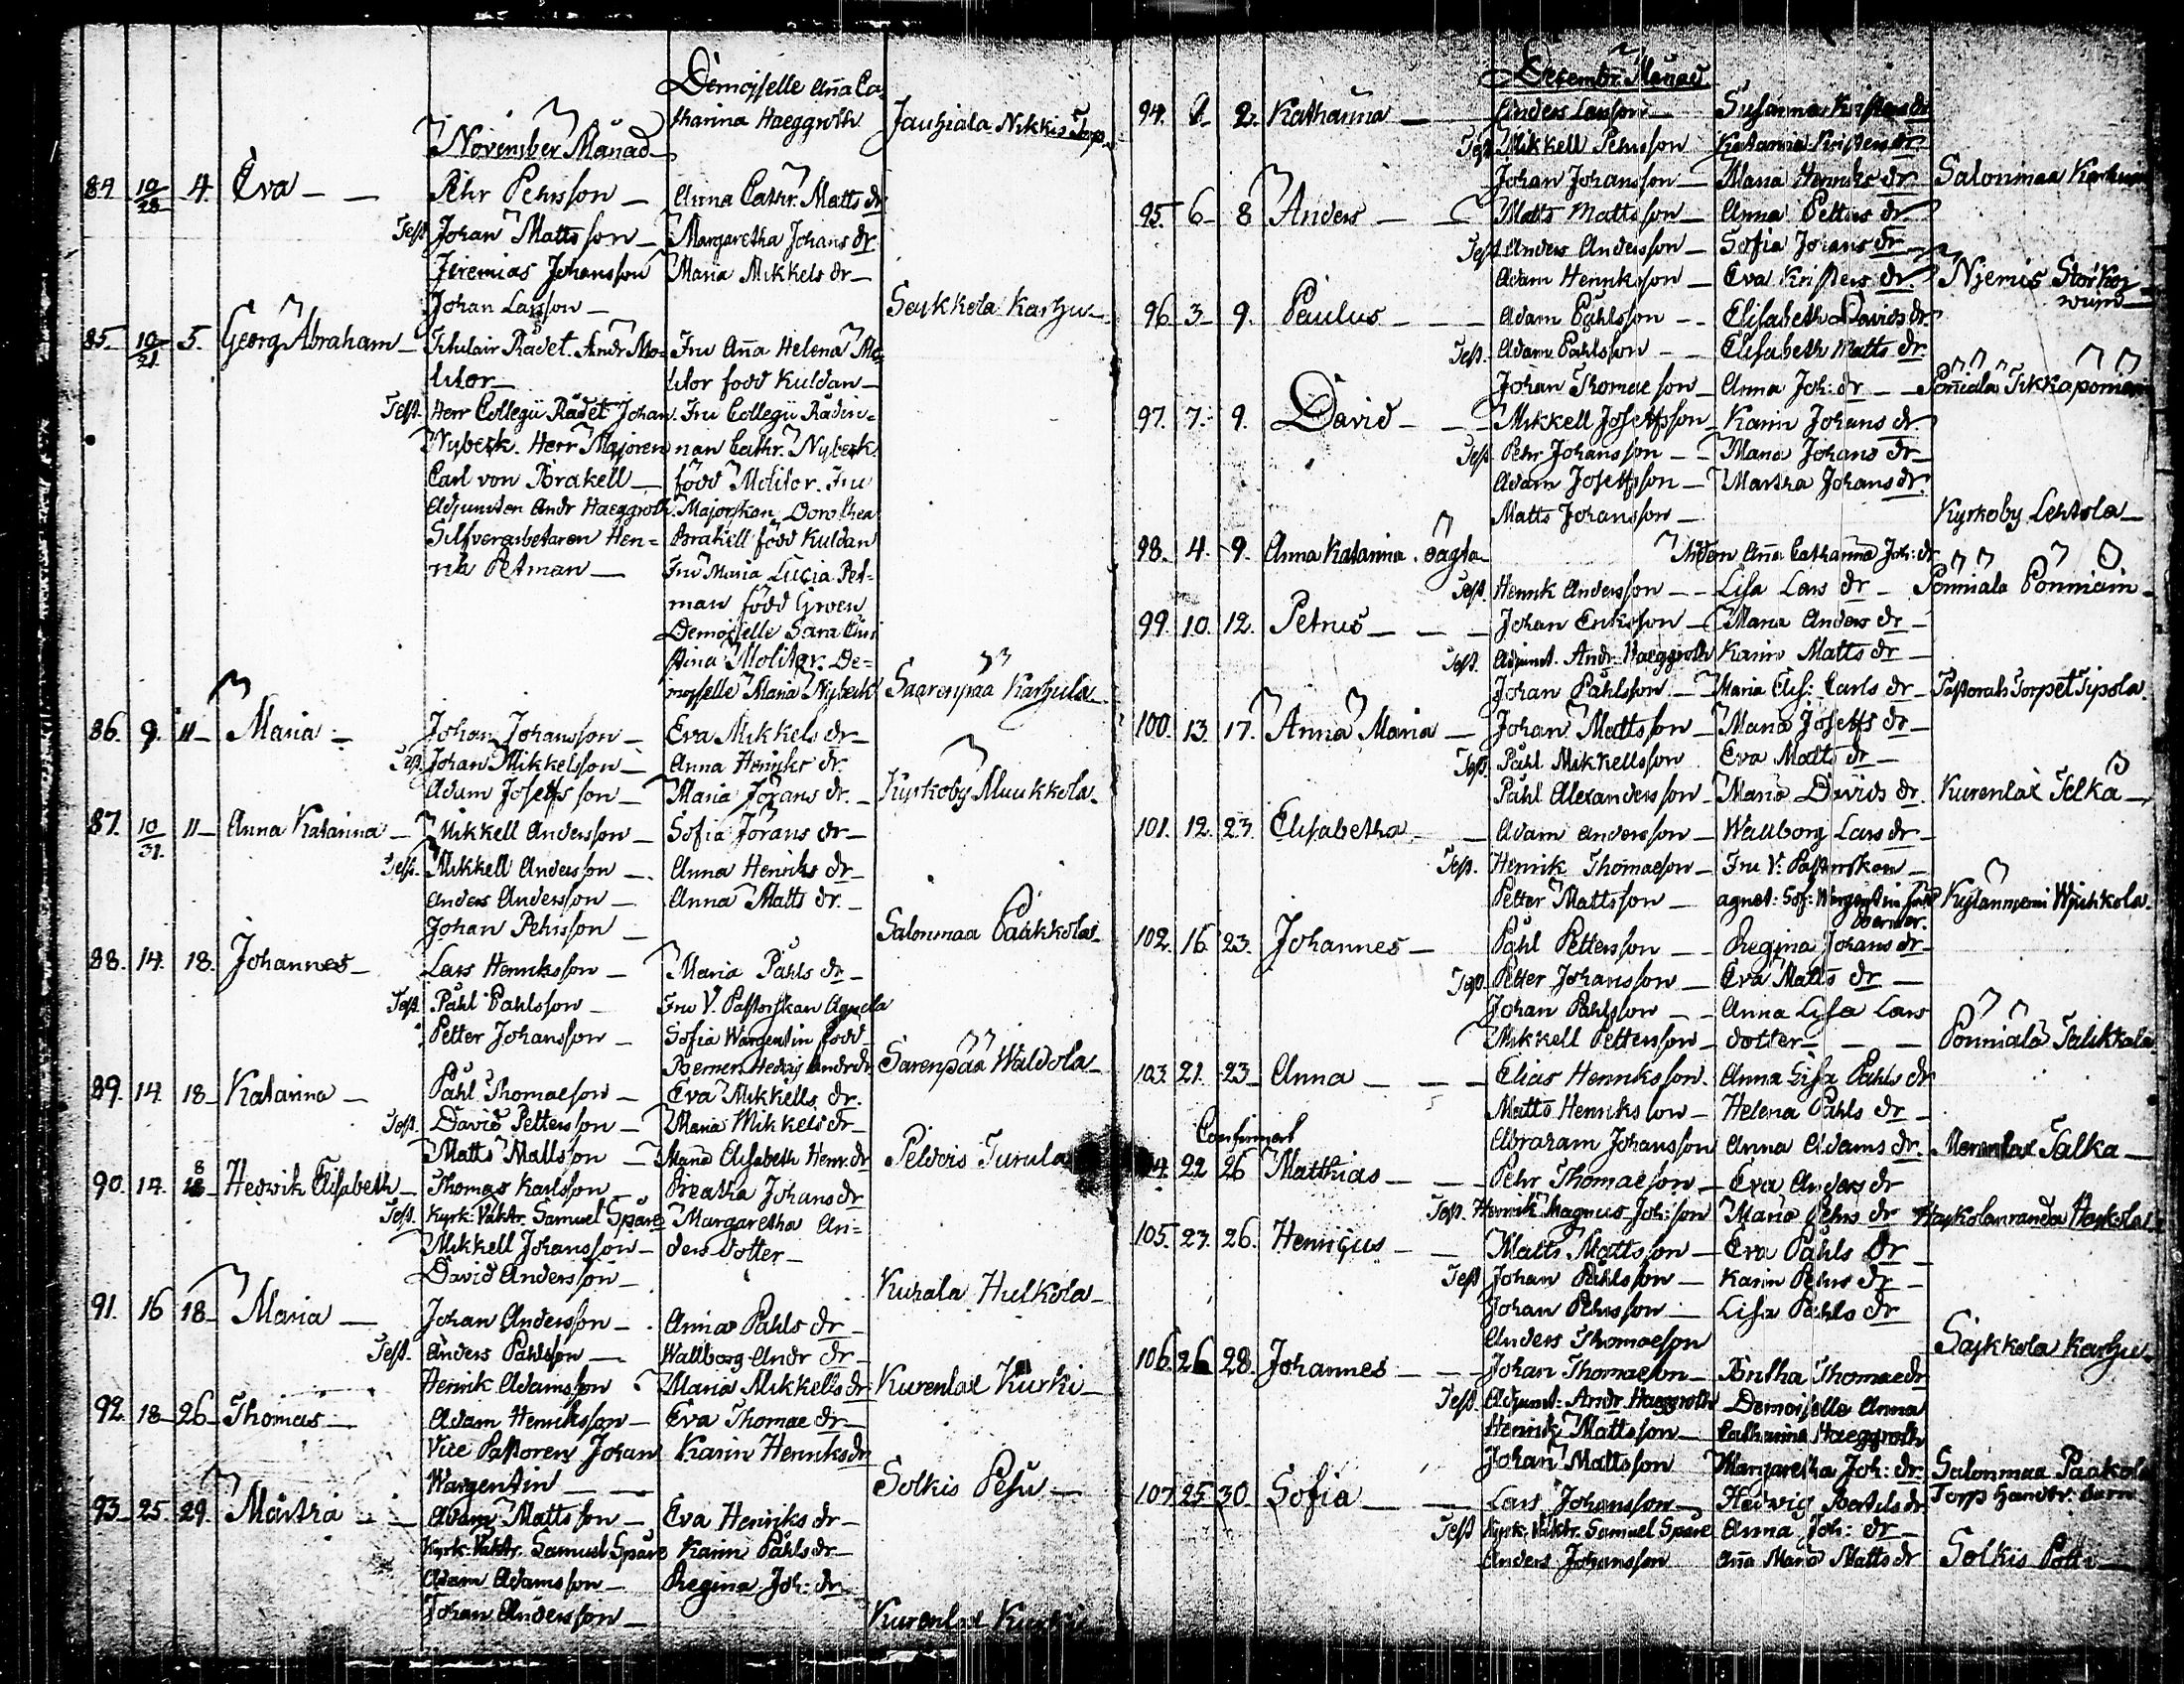 Demoiselle Aña Ca
tharina Haeggroth Jauhiala Nikkis Torp
November Månad
84. 10/28 4. Eva Pehr Pehrsson Anna Cathr. Matts dr
Test. Johan Mattsson Margaretha Johans dr
Jeremias Johansson Maria Mikkels dr
Johan Larsson Seykkola Karhu
85. 10/21. 5. Georg Abraham Titulair Rådet. Andr Mo- Fru Aña Helena Mo-
litor litor född Kuldan
Test. Herr Collegii Rådet Johan Fru Collegii Rådin-
Nyberk. Herr Majoren nan Cathr. Nyberk
Carl von Brakell född Molitor. Fru
Adjuncten Andr Haeggroth. Majorskan Dorothea
Silfverarbetaren Hen- Brakell född Kuldan
rik Petman Fru Maria Lucia Pet-
man född Groen
Demoiselle Sara Chri
stina Molitor. De-
moiselle Maria Nyberk Saarenpää Karhula
86. 9. 11 Maria Johan Johansson Eva Mikkels dr
Test. Johan Mikkelsson Anna Henriks dr.
Adam Josefsson Maria Johans dr. Kyrkoby Muukkola
87. 10/31. 11 Anna Katarina Mikkell Andersson Sofia Johans dr
Test. Mikkell Andersson Anna Henriks dr
Anders Andersson Anna Matts dr.
Johan Pehrsson Salonmaa Pääkkola
88. 14. 18. Johannes Lars Henriksson Maria Påhls dr
Test. Påhl Påhlsson Fru V. Pastorskan Agneta
Petter Johansson Sofia Wargentin född
Boerner. Hedvig Andr dr Sarenpää Waldola
89. 14. 18 Katarina Påhl Thomaeson Eva Mikkells dr.
Test. David Pettersson Maria Mikkels dr
Matts Mattsson Maria Elisabeth Henr. dr Peldois Turula
90. 14. 18 Hedwik Elisabeth Thomas Karlsson Breatha Johans dr
Test. Kyrk: Vaktr. Samuel Spåre Margaretha An-
Mikkell Johansson ders dotter
David Andersson Kuhala Hulkola
91. 16 18 Maria Johan Andersson Anna Påhls dr
Test. Anders Påhlsson Wallborg Andr dr
Henrik Adamsson Maria Mikkells dr Kurenlax Kurki
92. 18 26 Thomas Adam Henriksson Eva Thomae dr
Vice Pastoren Johan Karin Henriks dr
Wargentin Solkis Pesu
93. 25 29. Martha Adam Mattsson Eva Henriks dr
Kyrk: Vaktr. Samuel Spåre Karin Påhls dr
Adam Adamsson Regina Joh: dr
Johan Andersson Kurenlax Kurki
December Månad
94. 2. Katharina Anders Larsson Susanna Kristers dr
Test. Mikkell Pehrsson Katarina Kristers dr
Johan Johansson Maria Henriks dr Salonmaa
95. 6 8 Anders Matts Mattsson Anna Petters dr
Test. Anders Andersson Sofia Johans dr
Adam Henriksson Eva Kristers dr. Njemis Storkoi
96. 3 9. Paulus Adam Påhlsson Elisabeth Davids dr.
Test. Adam Påhlsson Elisabeth Matts dr.
Johan Thomaeson Anna Joh: dr
97. 7. 9. David Mikkell Josefsson Karin Johans dr
Test. Pehr Johansson Maria Johans dr
Adam Josefsson Martha Johans dr.
Matts Johansson Kyrkoby Lehtola
98. 4. 9. Anna Katarina. oägta Aña Catharina Joh: dr
Test. Henrik Andersson Lisa Lars dr
99. 10. 12. Petrus Johan Eriksson Maria Anders dr
Test. Adjunct. Andr. Haeggroth Karin Matts dr
Johan Påhlsson Maria Elis: Carls dr Pastorals Torpet Sipola
100. 13. 17. Anna Maria Johan Mattsson Maria Josefs dr
Test. Påhl Mikkellsson Eva Matts dr
Påhl Alexandersson Maria Davids dr. Kurenlax Telkä
101. 12. 23. Elisabetha Adam Andersson Wallborg Lars dr
Test. Henrik Thomaeson Fru V. Pastorskan
Petter Mattsson Agnet: Sof: Wargentin född
Boerner.
102. 16. 23. Johannes Påhl Pettersson Regina Johans dr
Test. Petter Johansson Eva Matts dr
Johan Påhlsson Anna Lisa Lars
Mikkell Pettersson dotter Ponniala Talikkala
103. 21. 23 Anna Elias Henriksson Anna Lisa Påhls dr
Matts Henriksson Helena Påhls dr
Abraham Johansson Anna Adams dr.
22 26 Matthias Pehr Thomaeson Eva Anders dr
Test. Henrik Magnus Joh: son Maria Pehrs dr
105. 23. 26. Henricus Matts Mattsson Eva Påhls dr
Test Johan Påhlsson Karin Pehrs dr
Johan Pehrsson Lisa Påhls dr
Anders Thomaeson Säykkola Karhu
106. 26 28. Johannes Johan Thomaeson Britha Thomae dr
Test. Adjunct: Andr. Haeggroth Demoiselle Anna
Henrik Mattsson Catharina Haeggroth
Johan Mattsson Margaretha Joh: dr. Salonmaa Paakola
107. 25 30. Sofia Lars Johansson Hedwig Bertils dr. Torp
Test Kyrk: Vaktr. Samuel Spåre Anna Joh: dr
Anders Johansson Aña Maria Matts dr Solkis